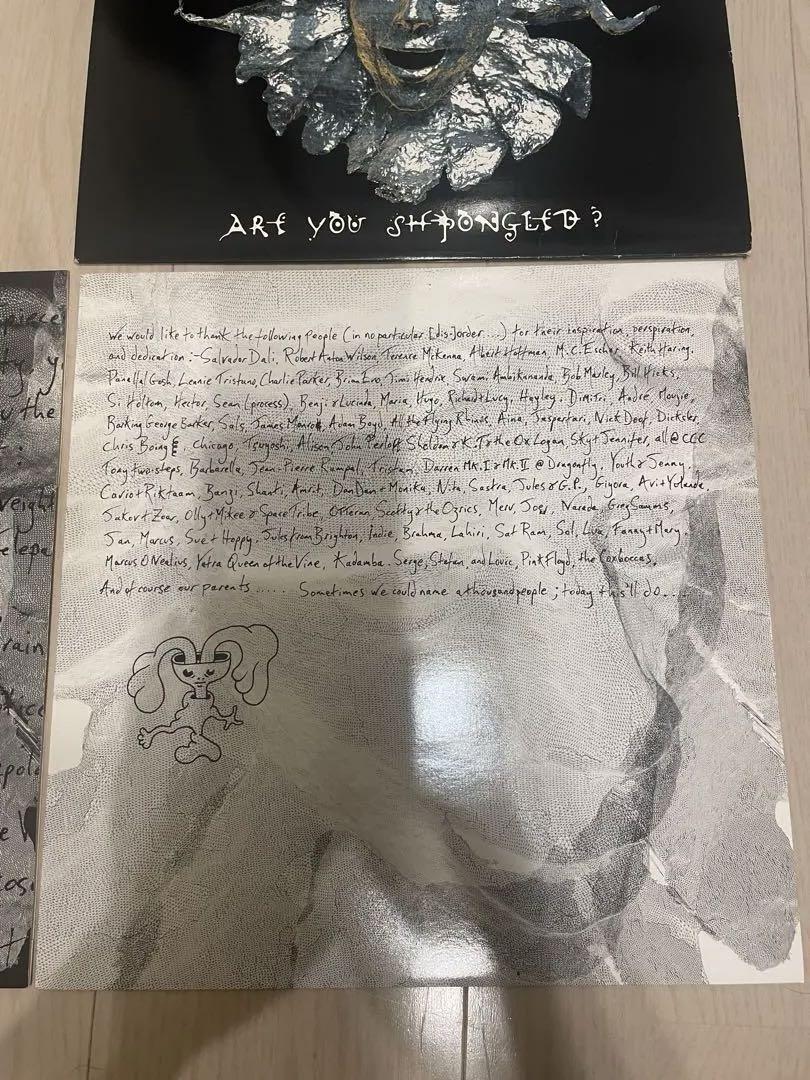 ARE YOU SHPONGLED?
We would like to thank the following people (in no particular [dis-]order ....) for their inspiration, perspiration,
and dedication :- Salvador Dali, Robert Anton Wilson, Terence McKenna, Albert Hoffman, M.C. Escher, Keith Haring,
Pannalal Gosh, Lennie Tristano, Charlie Parker, Brian Eno, Jimi Hendrix, Swami Ambikananda, Bob Marley, Bill Hicks,
Si Holtom, Hector, Sean (process), Benji & Lucinda, Maria, Hugo, Richard + Lucy, Hayley, Dimitri, André,
Barking George Barker, Sals, James Monro, Adam Boyd, All the Flying Rhinos, Aina, Jaspertari, Nick Doof, Dickster,
Chris Boing E, Chicago, Tsuyoshi, Alison, John Perloff, Sheldon & K.T, the Ox Logan, Sky + Jennifer, all @ CCC
Tony two-steps, Barbarella, Jean-Pierre Rampal, Tristan, Darren MK.I & MK.II @ Dragonfly, Youth & Jenny,
Cavio + Riktaam, Banzi, Shanti, Amrit, Dan Dan + Monika, Nita, Sastra, Jules & G.P., Giyora, Avi + Yolanda,
+ Zoar, Olly + Mikee & Space Tribe, Otteran, Scotty & the Ozrics, Merv, Josi, Narada, Greg Sams,
Jan, Marcus, Sue + Hoppy, Jules from Brighton, Indie, Brahma, Lahiri, Sat Ram, Sol, Fanny + Mary,
Marcus O'Nealius, Yatra Queen of the Vine, Kadamba, Serge, Stefan, and Lovic, Pink Floyd, the Coxboccas,
And of course our parents ..... Sometimes we could name a thousand people ; today this'll do ....
piece
the
weight
elepa
rain